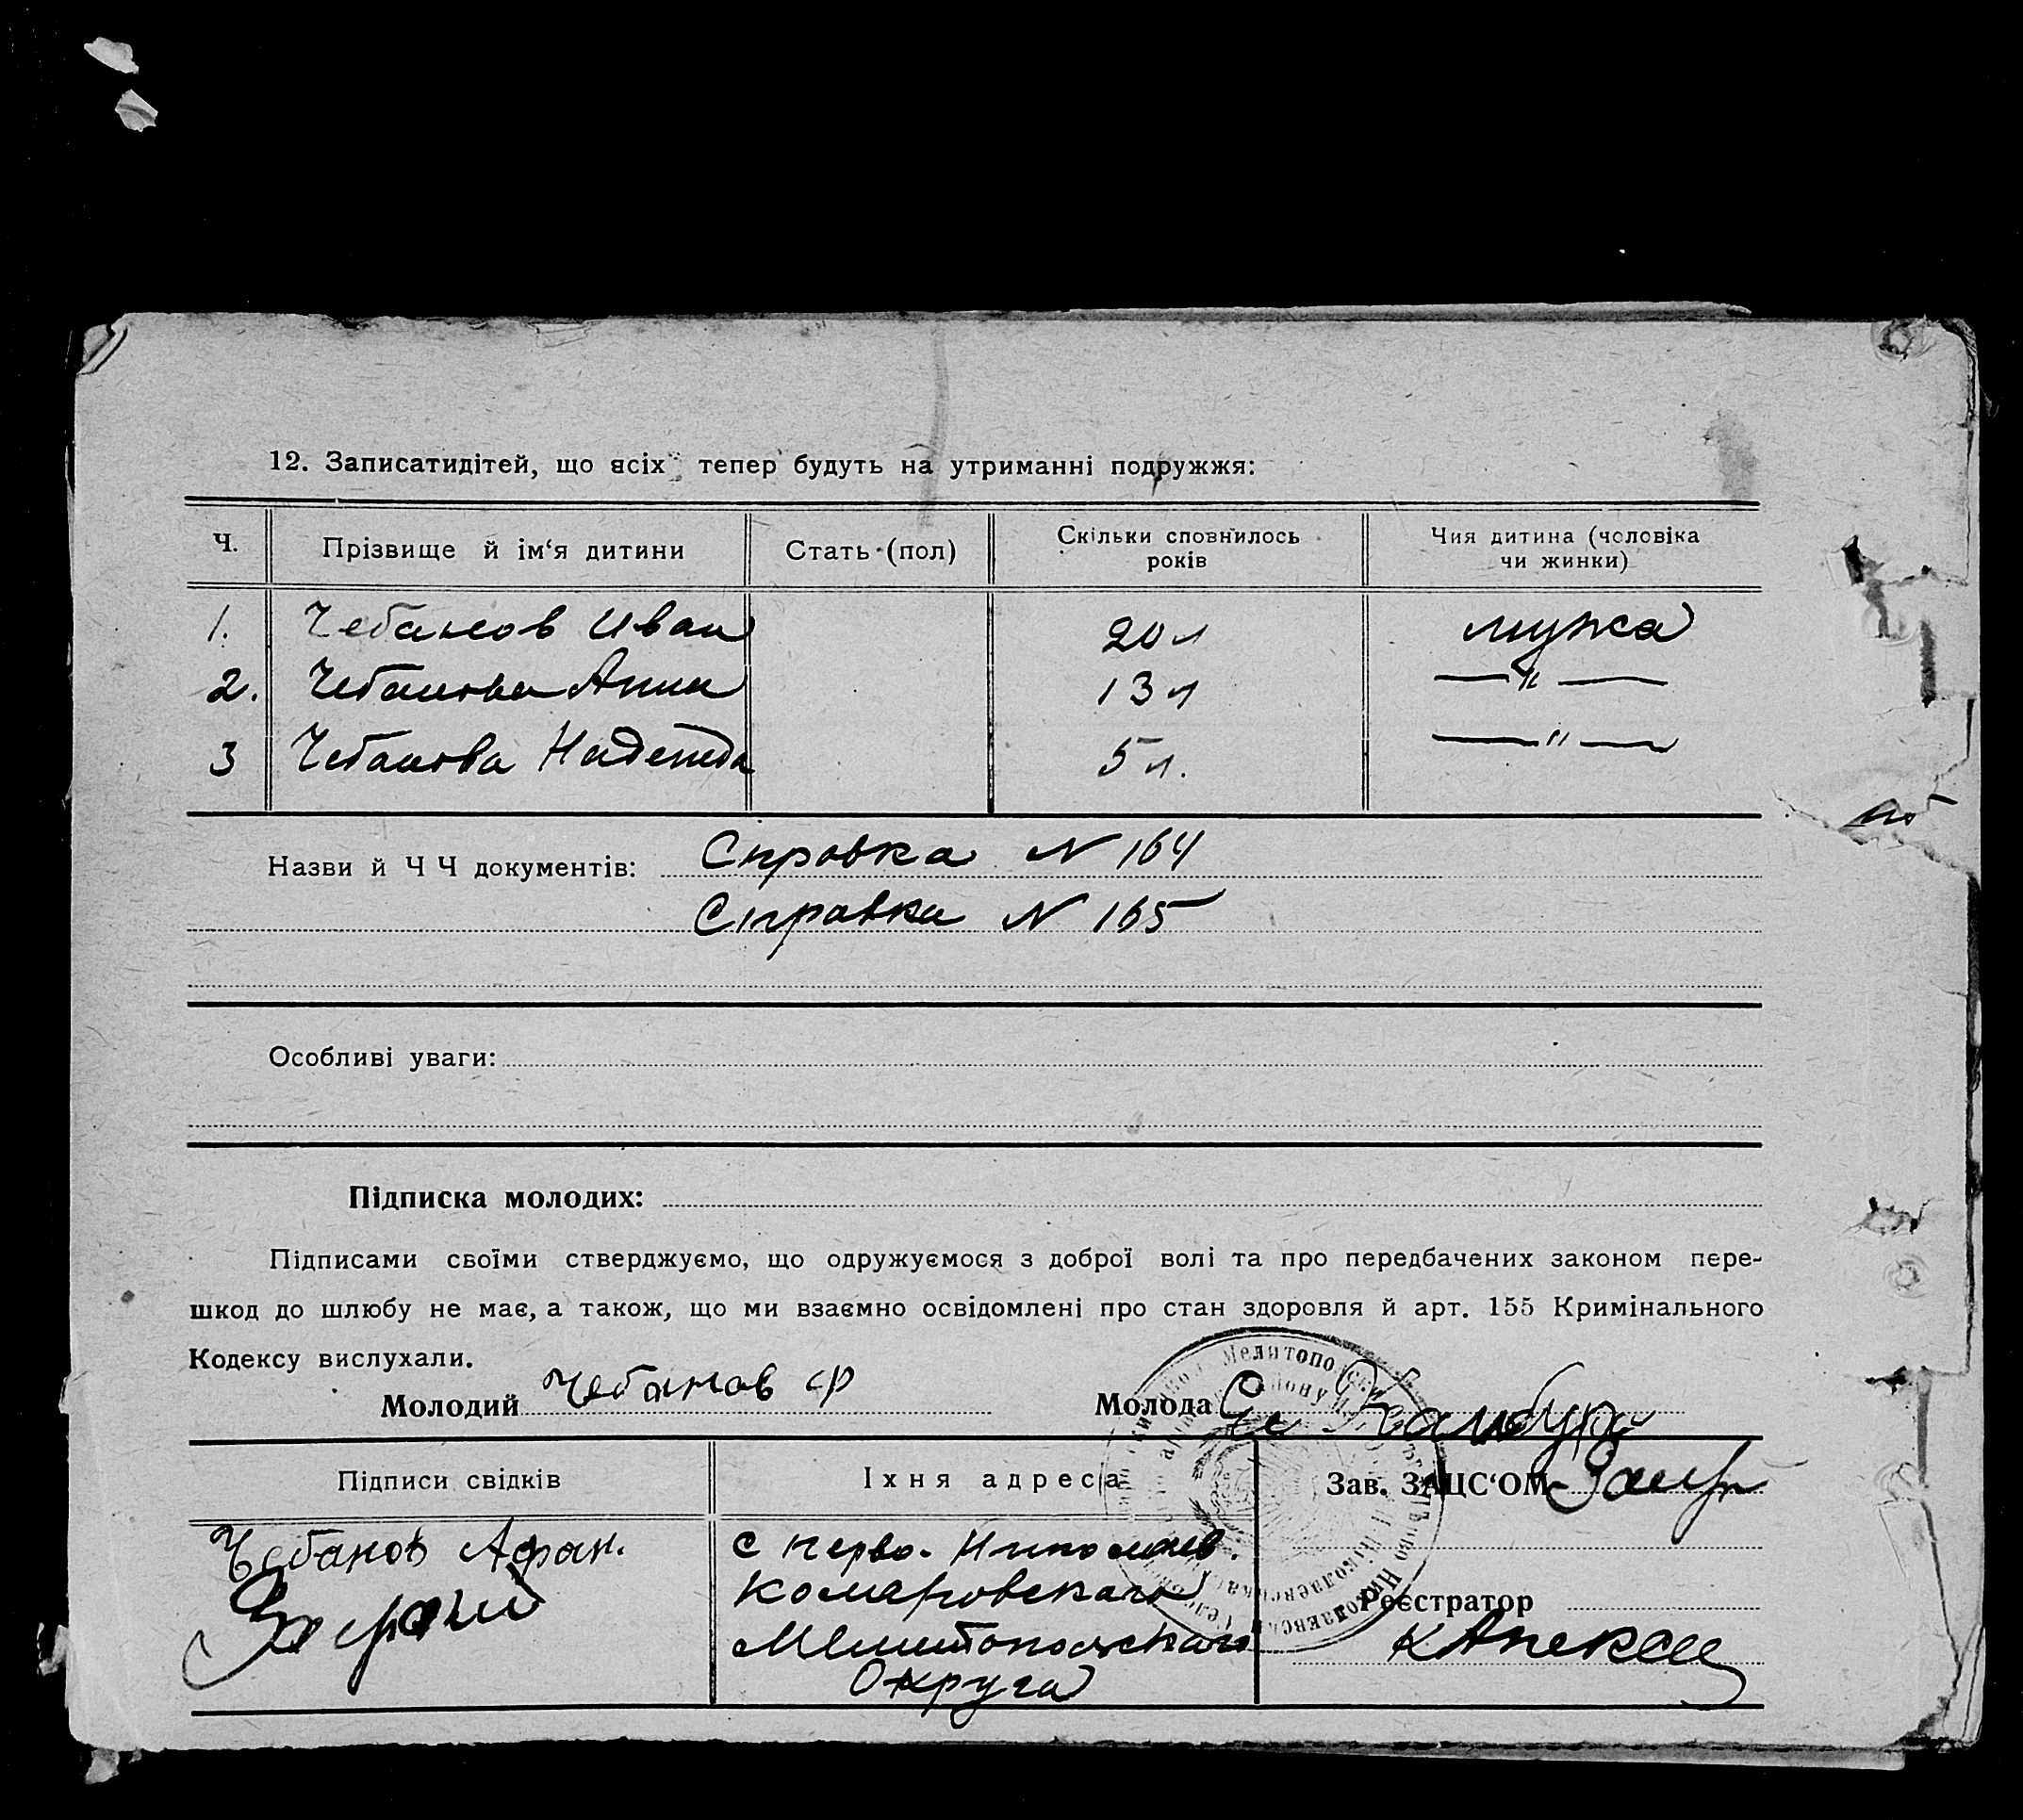 12. Записатидітей, що всіх тепер будуть на утриманні подружжя:
Ч. Прізвище й ім‘я дитини Стать (пол) Скільки сповнилось років Чия дитина (чоловіка чи жинки)
1. Чебанов Иван 20 л мужа
2. Чебанова Анна 13 л —„—
3 Чебанова Надежда 5 л. —„—
Назви й Ч Ч документів: Справка N 164
Справка N 165
Особливі уваги:
Підписка молодих:
Підписами своїми стверджуємо, що одружуємося з доброї волі та про передбачених законом пере-
шкод до шлюбу не має, а також, що ми взаємно освідомлені про стан здоровля й арт. 155 Кримінального
Кодексу вислухали.
Молодий Чебанов Ф Молода Камбур
Підписи свідків Їхня адреса Зав. ЗАЦС‘ОМ
Чебанов Афан. с Перво. Николаев.
Комаровского Реєстратор
Мелитопольского
Округа